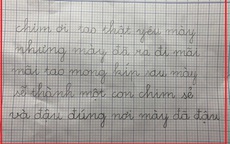 chim ơi tao thật yêu mày
nhưng mày đã ra đi mãi
mãi tao mong kiếp sau mày
sẽ thành một con chim sẻ
và đậu đúng nơi mày đã đậu